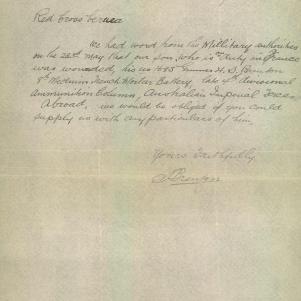 Red Cross
We had word from the Millitary authorities
on the 22nd May that our son, who is Duty in France
was wounded, his no 1685 Gunner H. S. Brenton
Medium Trench Mortar Battery late 4th Divisional
Ammunition Column, Australian Imperial Forces
Abroad, we would be obliged if you could
supply us with any particulars of him
Yours Faithfully
Brenton